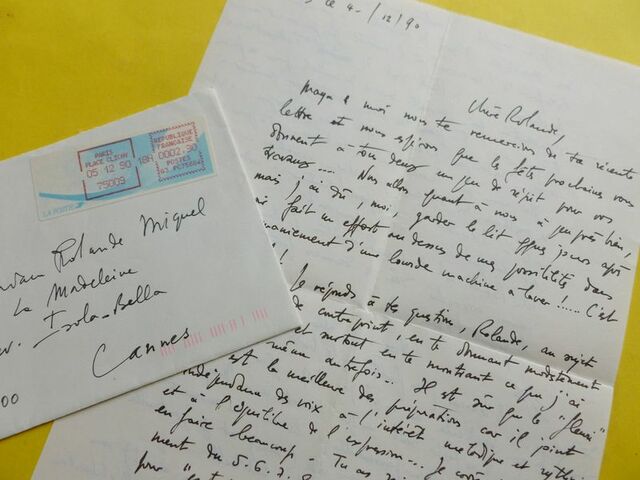 ce 4-/12/90
Chère Rolande,
Maga & moi nous te remercions de ta récente
lettre et nous espérons que les fêtes prochaines vous
donnent à tous deux un peu de répit pour vos
travaux.... Nous allons quant à nous à peu près bien,
mais j'ai dû, moi, garder le lit qques jours après
fait un effort au dessus de mes possibilités dans
maniement d'une lourde machine à laver!..... C'est
!
Je réponds à ta question, Rolande, au sujet
contrepoint, en te donnant modestement
et surtout en te montrant ce que j'ai
même autrefois... Il est sûr que le "fleuri"
est la meilleure des préparations car il joint
indépendance des voix à l'intérêt mélodique et
et à l'équilibre de l'expression...
en faire beaucoup - Tu as
ment du 5.6.7.8
pour
PARIS
PLACE CLICHY
05 12 90 18H
75009
REPUBLIQUE
FRANCAISE
0002.30
POSTES
LA POSTE
Rolande Miquel
La Madeleine
Av. Isola-Bella
Cannes
00